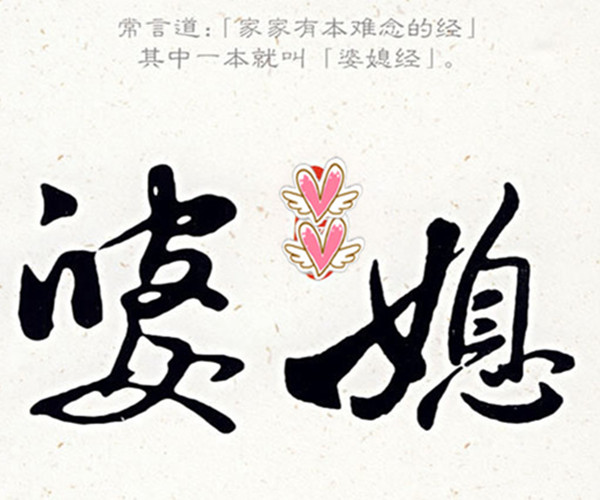 常言道:「家家有本难念的经」
其中一本就叫「婆媳经」。
婆媳